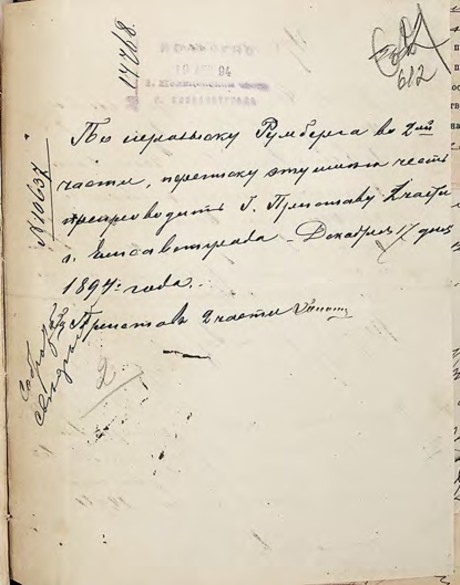 17768.
19 94
г. ЕЛИСАВЕТГРАДА
612
№10637
По нерозыску Румберга во 2ой
части, переписку эту имею честь
препроводить Г. Приставу части
г. Елисаветграда. Декабря 17 дня
1894 года.
Пристав 2 части
Собрать
сведения
2